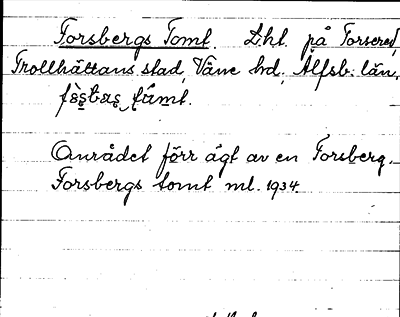 Forsbergs Tomt. Lht. på Torsered,
Trollhättans stad, Väne hd, Älfsb. län.
Området förr ägt av en Forsberg.
Forsbergs tomt ml. 1934